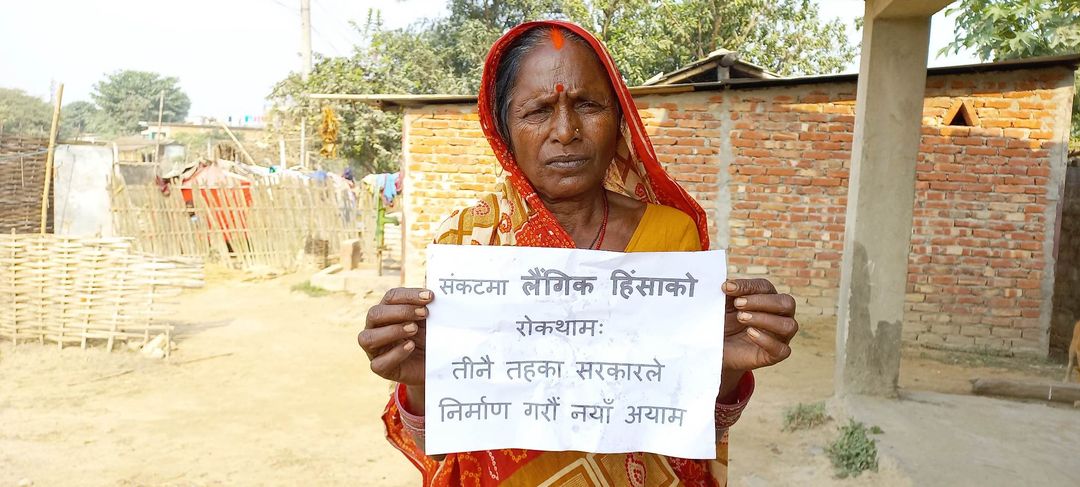 संकटमा लैंगिक हिंसाको
रोकथामः
तीनै तहका सरकारले
निर्माण गरौं नयाँ अयाम